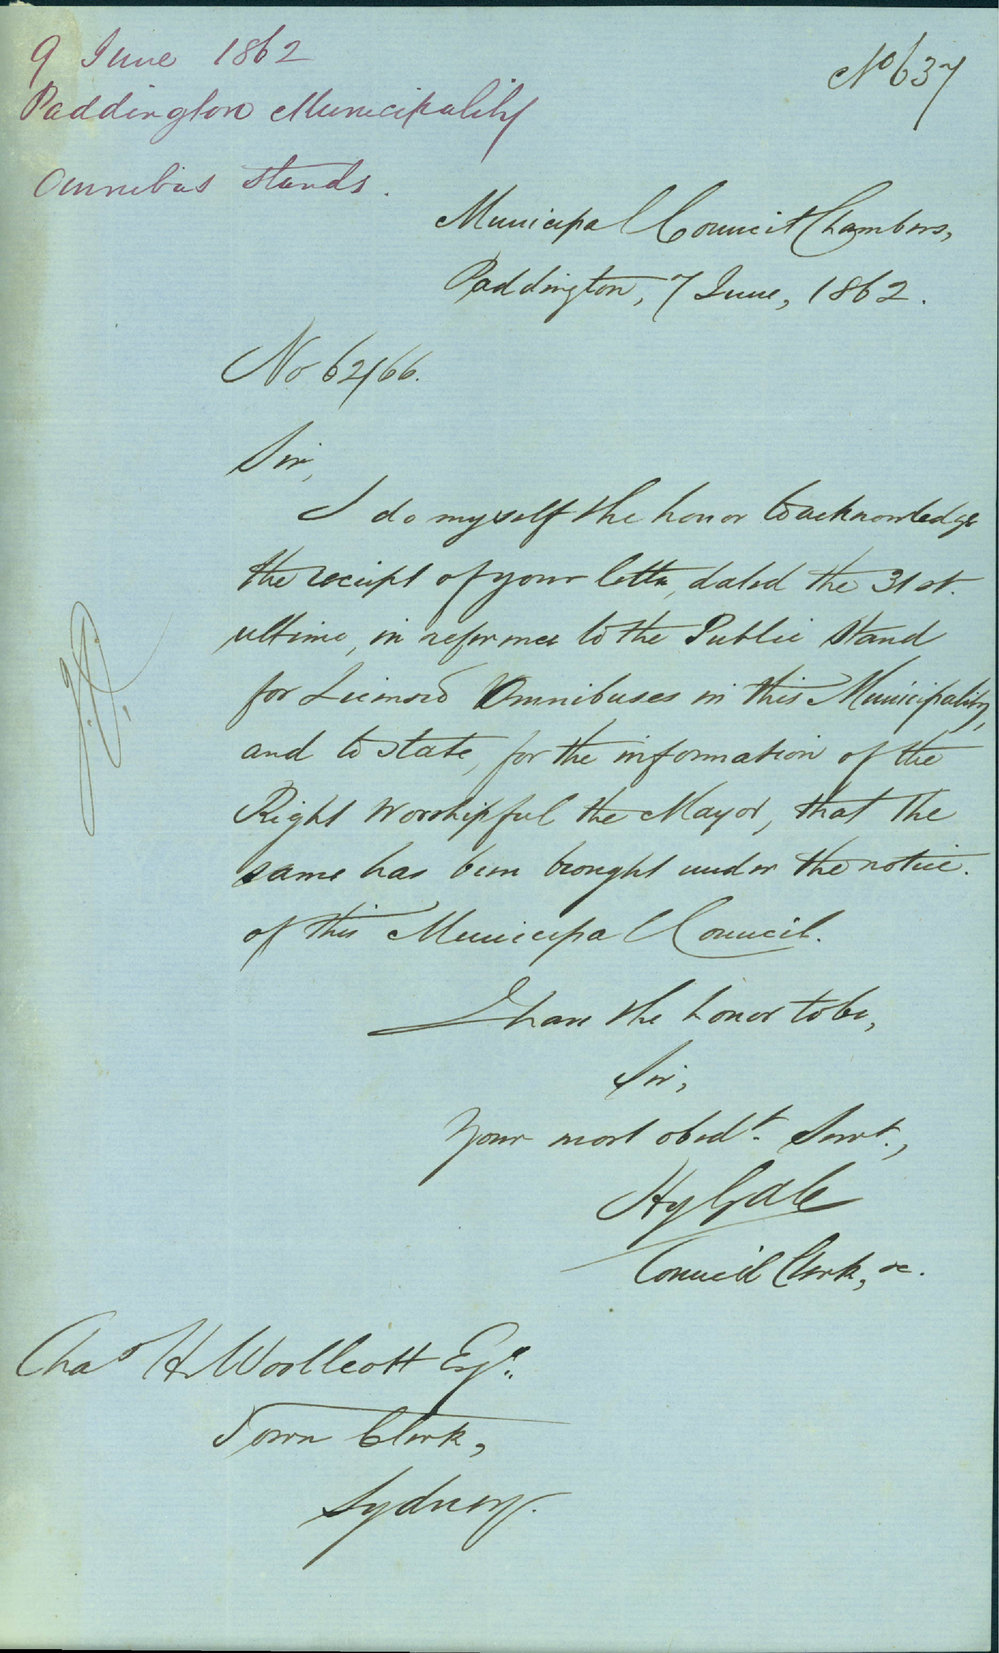 9 June 1862
Paddington Municipality
Omnibus Stands.
No 637
Municipal Council Chambers,
Paddington, 7 June, 1862.
No 62/66.
Sir,
I do myself the honor to acknowledge
the receipt of your letter, dated the 31st.
ultimo, in reference to the Public Stand
for Licensed Omnibuses in this Municipality,
and to state, for the information of the
Right Worshipful the Mayor, that the
same has been brought under the notice.
of this Municipal Council.
I have the honor to be,
Sir,
Your most obedt. Servt.,
Council Clerk, &c.
Chas H Woollcott Esqr.
Town Clerk,
Sydney.